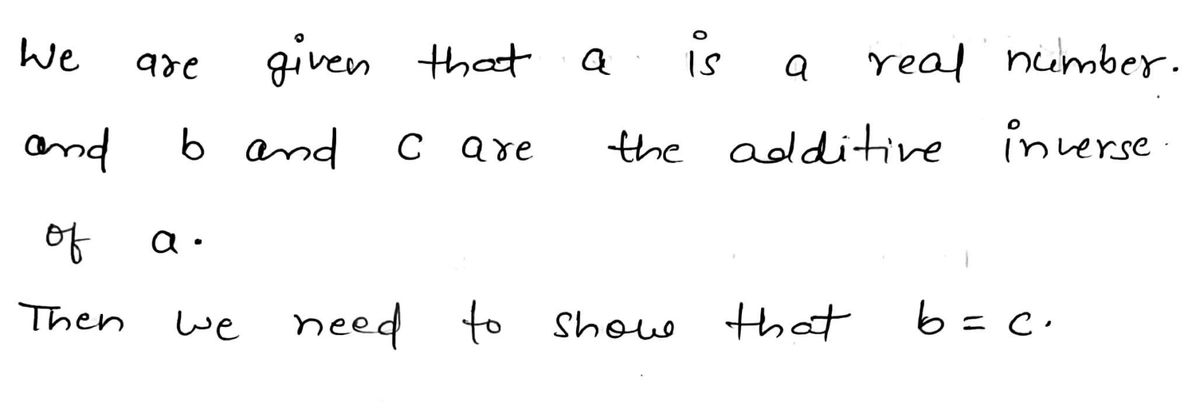 We are given that a is a real number.
and b and c are the additive inverse
of a.
Then we need to show that b = c.